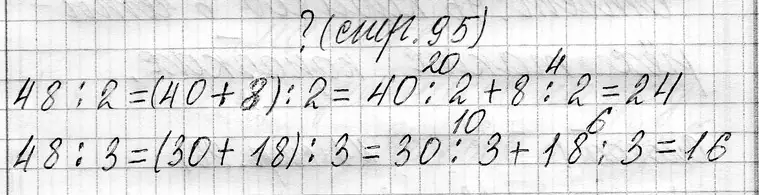 ? (стр. 95)
20 4
48 : 2 = (40 + 8) : 2 = 40 : 2 + 8 : 2 = 24
10 6
48 : 3 = (30 + 18) : 3 = 30 : 3 + 18 : 3 = 16